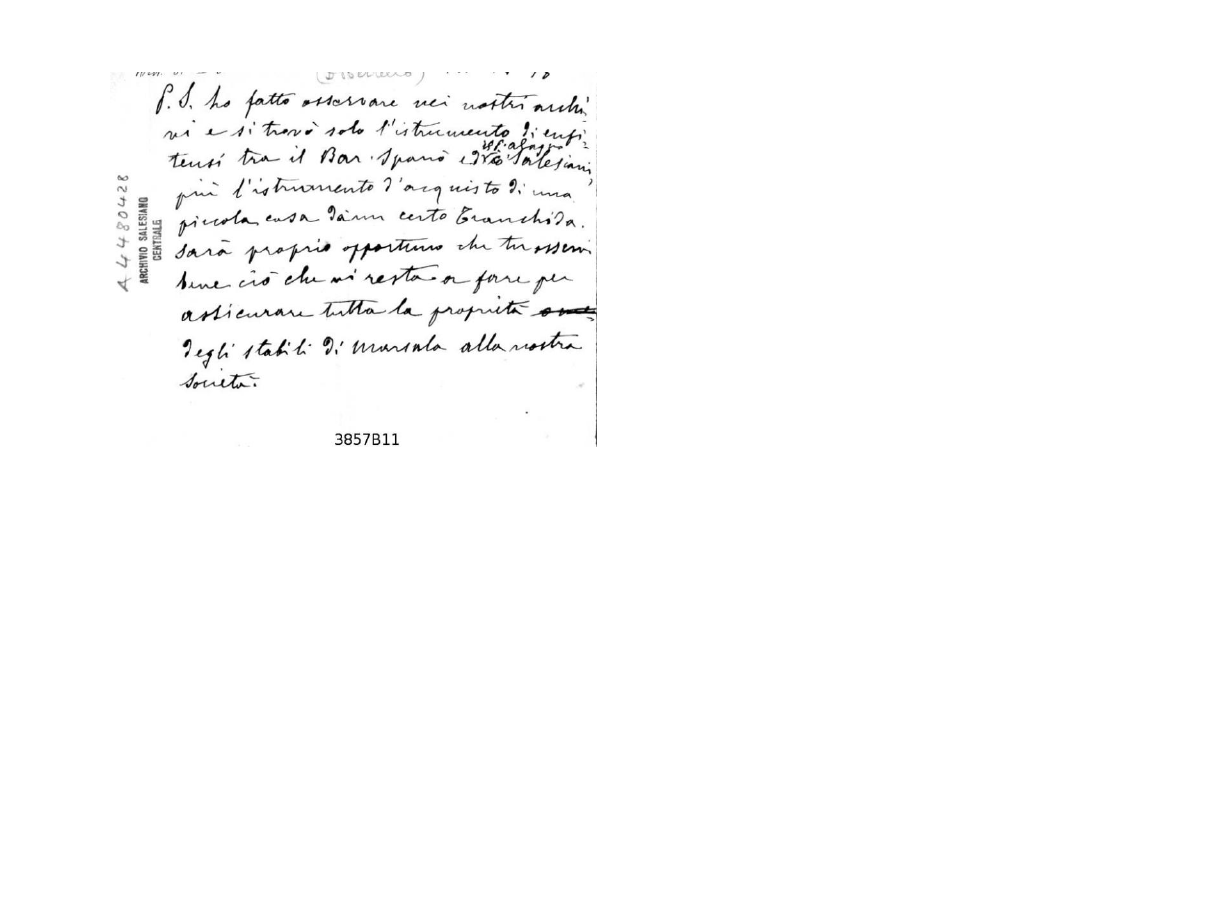 P. S. ho fatto osservare nei nostri archi
vi e si trovò solo l'istrumento di enfi-
tensi tra il Bar. Spanò e Salesiani,
più l'istrumento d'acquisto di una
piccola casa da un certo Tranchida.
Sarà proprio opportuno che tu osservi
bene ciò che vi resta a fare per
assicurare tutta la proprietà
degli stabili di Marsala alla nostra
Società.
A4480428
ARCHIVIO SALESIANO
CENTRALE
3857B11